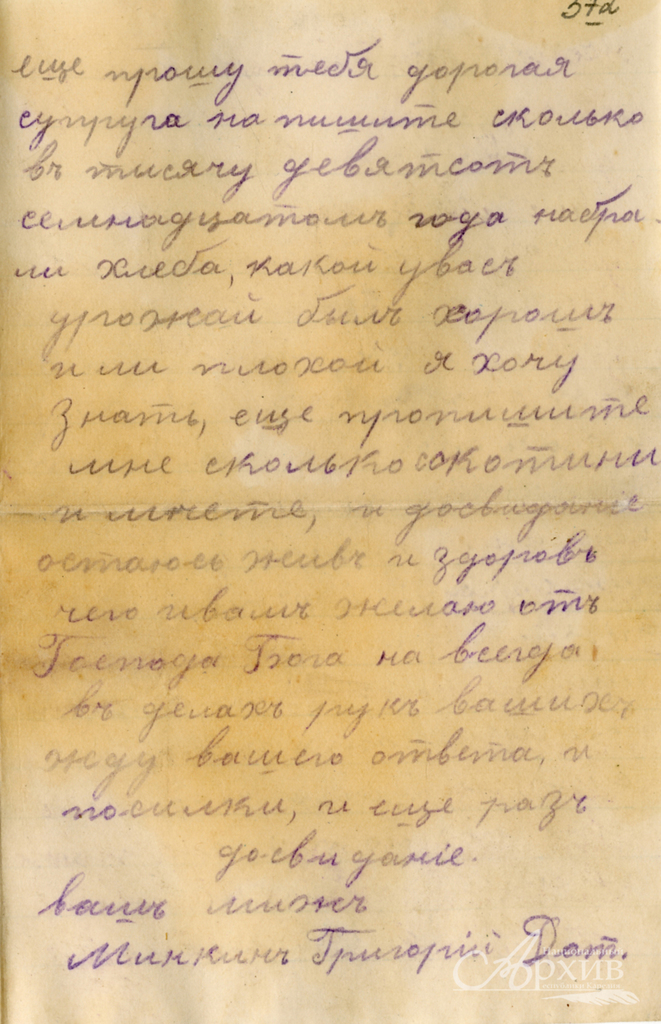 57д
еще прошу тебя дорогая
супруга на пишите сколько
въ тисячу девятсотъ
семнадцатомъ года набра-
ли хлеба, какой увасъ
урожай былъ хорошъ
или плохой я хочу
знать, еще пропишите
мне сколько скотини
имеете, и досвиданіе
остаюсь живъ и здоровъ
чего ивамъ желаю отъ
Господа Бога на всегда
въ делахъ рукъ вашихъ
жду вашего ответа, и
посилки, и еще разъ
досвиданіе.
вашъ мижъ
Минкинъ Григорій Дат.
Архив